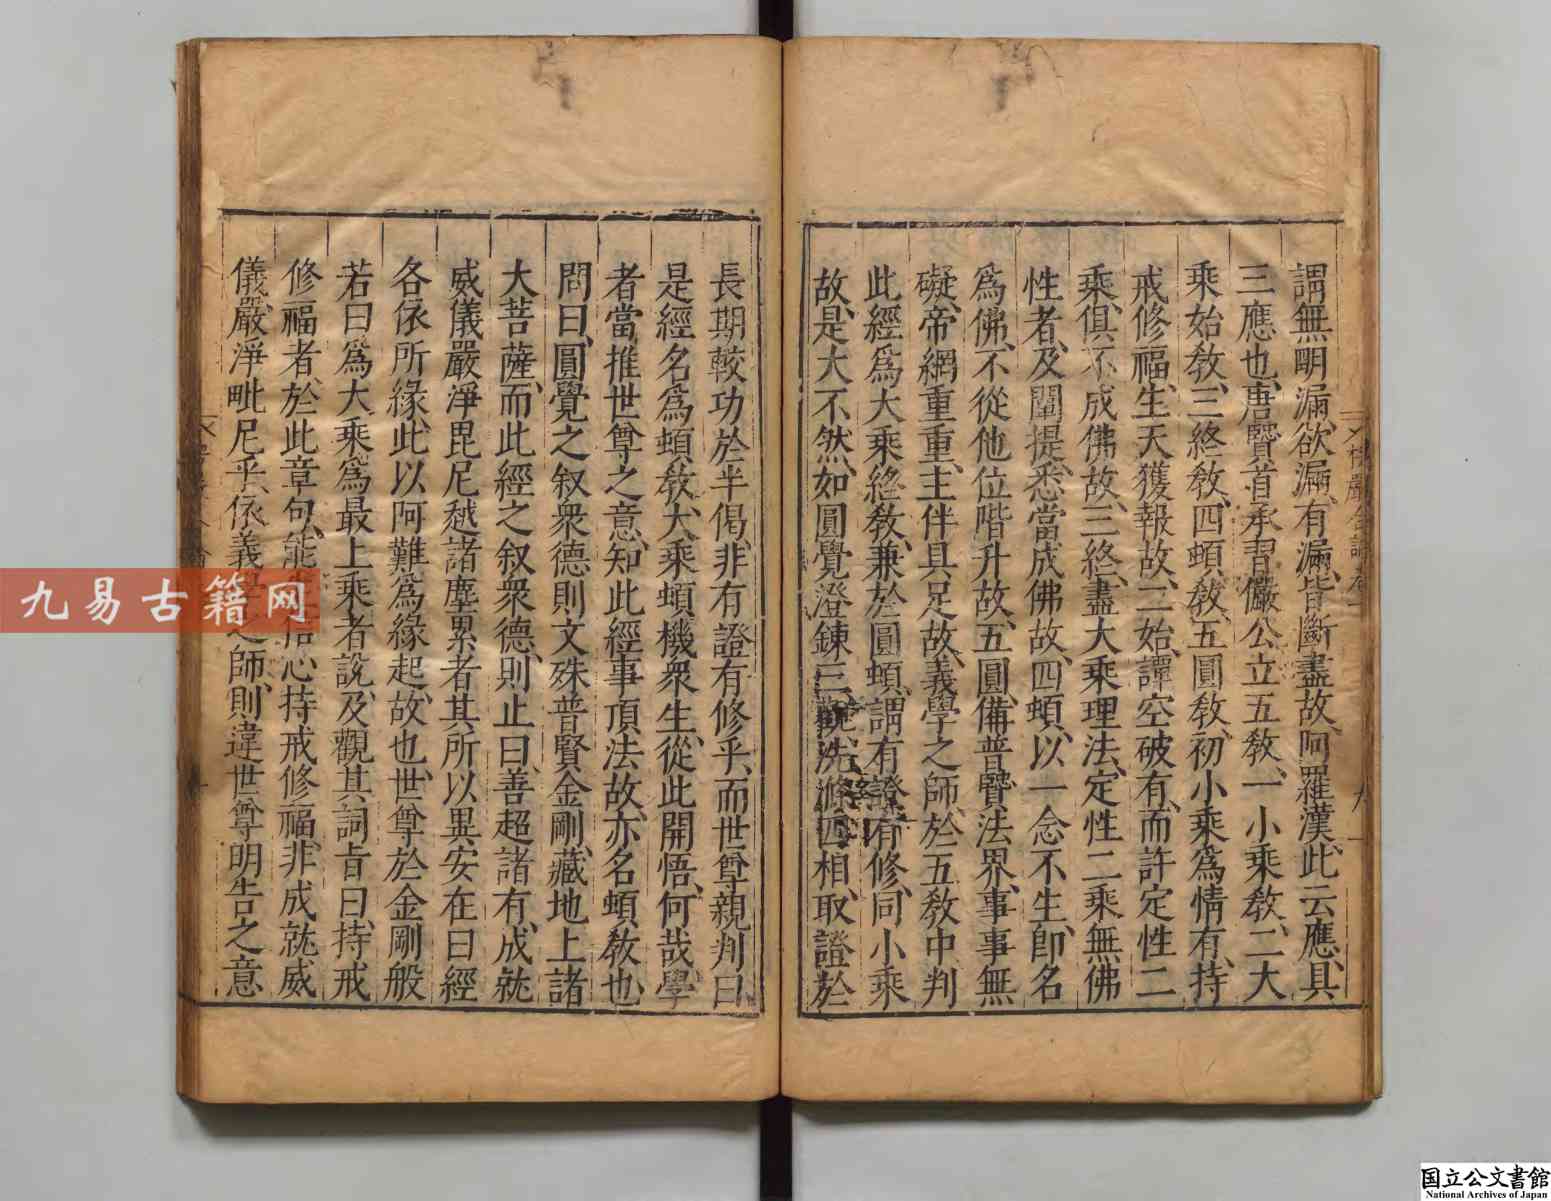 謂無明漏、欲漏、有漏、皆斷盡故、阿羅漢、此云應、具
三應也、唐賢首承習儼公立五教、一小乘教、二大
乘始教、三終教、四頓教、五圓教、初小乘、為情有、持
戒修福、生天獲報故、二始、譚空破有、而許定性二
乘、俱不成佛故、三終、盡大乘理法、定性二乘無佛
性者、及闡提、悉當成佛故、四頓、以一念不生、即名
為佛、不從他位階升故、五圓、備普賢法界、事事無
礙、帝網重重、主伴具足故、義學之師、於五教中判
此經為大乘終教、兼於圓頓、謂有證有修、同小乘
故、是大不然、如圓覺澄鍊三觀、洗滌四相、取證於
長期較功於半偈、非有證有修乎、而世尊親判曰
是經名為頓教、大乘頓機衆生、從此開悟、何哉、學
者當推世尊之意、知此經事頂法故、亦名頓教也、
問曰、圓覺之叙衆德則文殊普賢金剛藏地上諸
大菩薩、而此經之叙衆德、則止曰、善超諸有、成就
威儀、嚴淨毘尼、越諸塵累者、其所以異安在、曰經
各依所緣、此以阿難為緣起故也、世尊於金剛般
若曰、為大乘為最上乘者說、及觀其詞旨曰、持戒
修福者、於此章句、能信心持戒修福、非成就威
儀、嚴淨毗尼乎、依義之師、則違世尊明告之意
九易古籍网
国立公文書館
National Archives of Japan